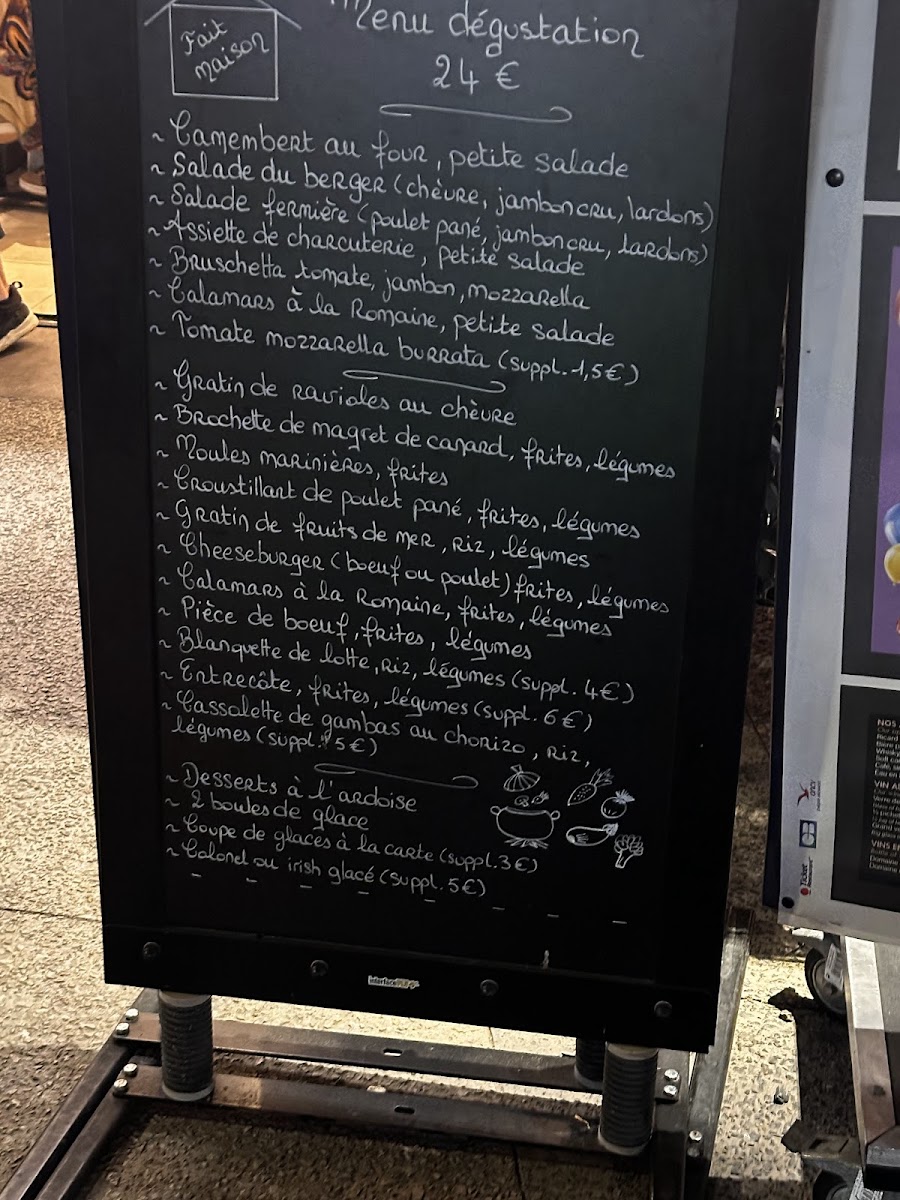 Fait
maison
Menu dégustation
24 €
~ Camembert au four, petite salade
~ Salade du berger (chèvre, jambon cru, lardons)
~ Salade fermière (poulet pané, jambon cru, lardons)
~ Assiette de charcuterie, petite salade
~ Bruschetta tomate, jambon, mozzarella
~ Calamars à la Romaine, petite salade
~ Tomate mozzarella burrata (suppl. 1,5€)
~ Gratin de ravioles au chèvre
~ Brochette de magret de canard, frites, légumes
~ Moules marinières, frites
~ Croustillant de poulet pané, frites, légumes
~ Gratin de fruits de mer, riz, légumes
~ Cheeseburger (boeuf ou poulet) frites, légumes
~ Calamars à la Romaine, frites, légumes
~ Pièce de boeuf, frites, légumes
~ Blanquette de lotte, riz, légumes (suppl. 4€)
~ Entrecôte, frites, légumes (suppl. 6€)
~ Cassolette de gambas au chorizo, riz,
légumes (suppl. 5€)
~ Desserts à l'ardoise
~ 2 boules de glace
~ Coupe de glaces à la carte (suppl. 3€)
~ Colonel ou irish glacé (suppl. 5€)
NOS
Ricard
Whisky
VIN A
VINS E
Domaine
Domaine
Ticket